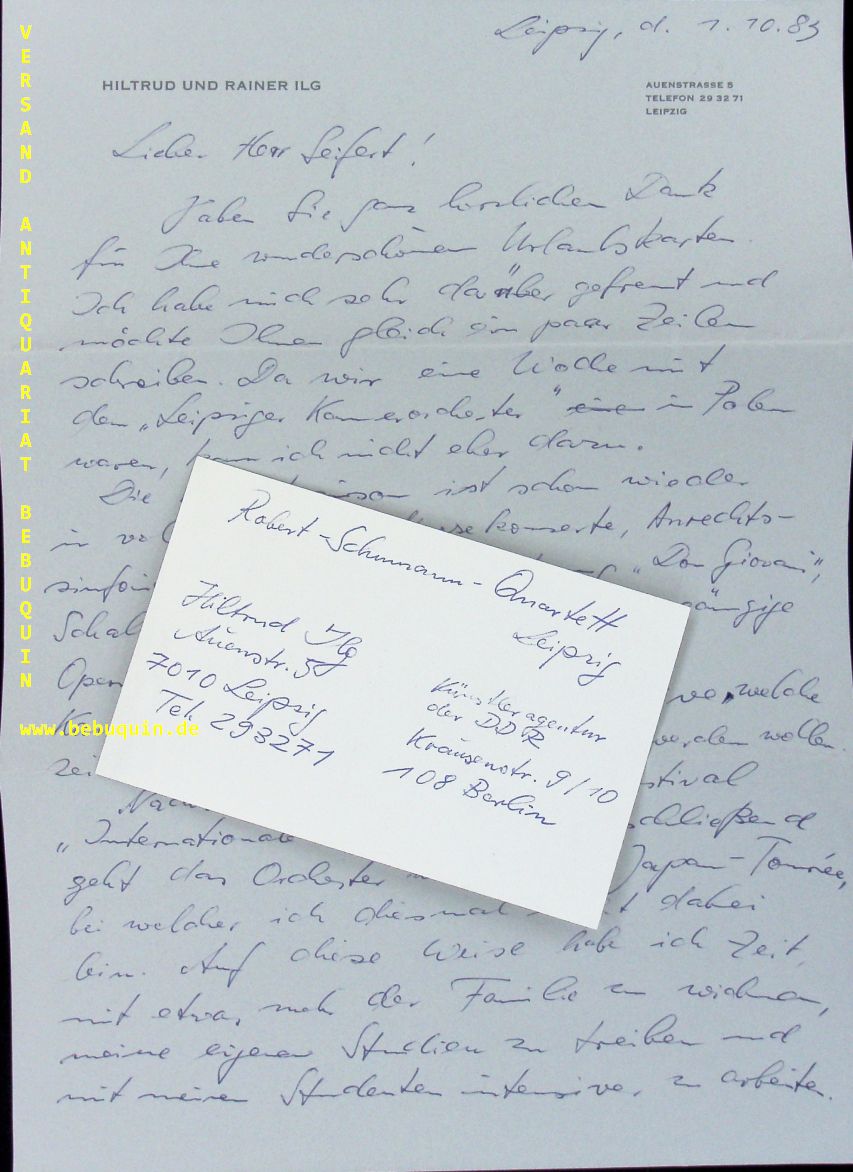 Leipzig, d. 1.10.83
HILTRUD UND RAINER ILG
AUENSTRASSE 5
TELEFON 29 32 71
LEIPZIG
Lieber Herr Seifert!
Haben Sie ganz herzlichen Dank
für Ihre wunderschönen Urlaubskarten.
Ich habe mich sehr darüber gefreut und
möchte Ihnen gleich ein paar Zeilen
schreiben. Da wir eine Woche mit
dem „Leipziger Kammerorchester" einen in Polen
waren, kam ich nicht eher dazu.
Die ist schon wieder
in konzerte, Anrechts-
„Don Giovani",
sinfon
Schal
Oper welche
werden wollen.
zei
Nach
„Internationale
geht das Orchester Japan-Tournée,
bei welcher ich diesmal dabei
bin. Auf diese Weise habe ich Zeit,
mit etwas mehr der Familie zu widmen,
meine eigenen Studien zu treiben und
mit meinen Studenten intensiver zu arbeiten.
Robert-Schumann-Quartett
Leipzig
Hiltrud Ilg
Auenstr. 5
7010 Leipzig
Tel. 293271
Künstleragentur
der DDR
Krausenstr. 9/10
108 Berlin
VERSAND ANTIQUARIAT BEBUQUIN
www.bebuquin.de